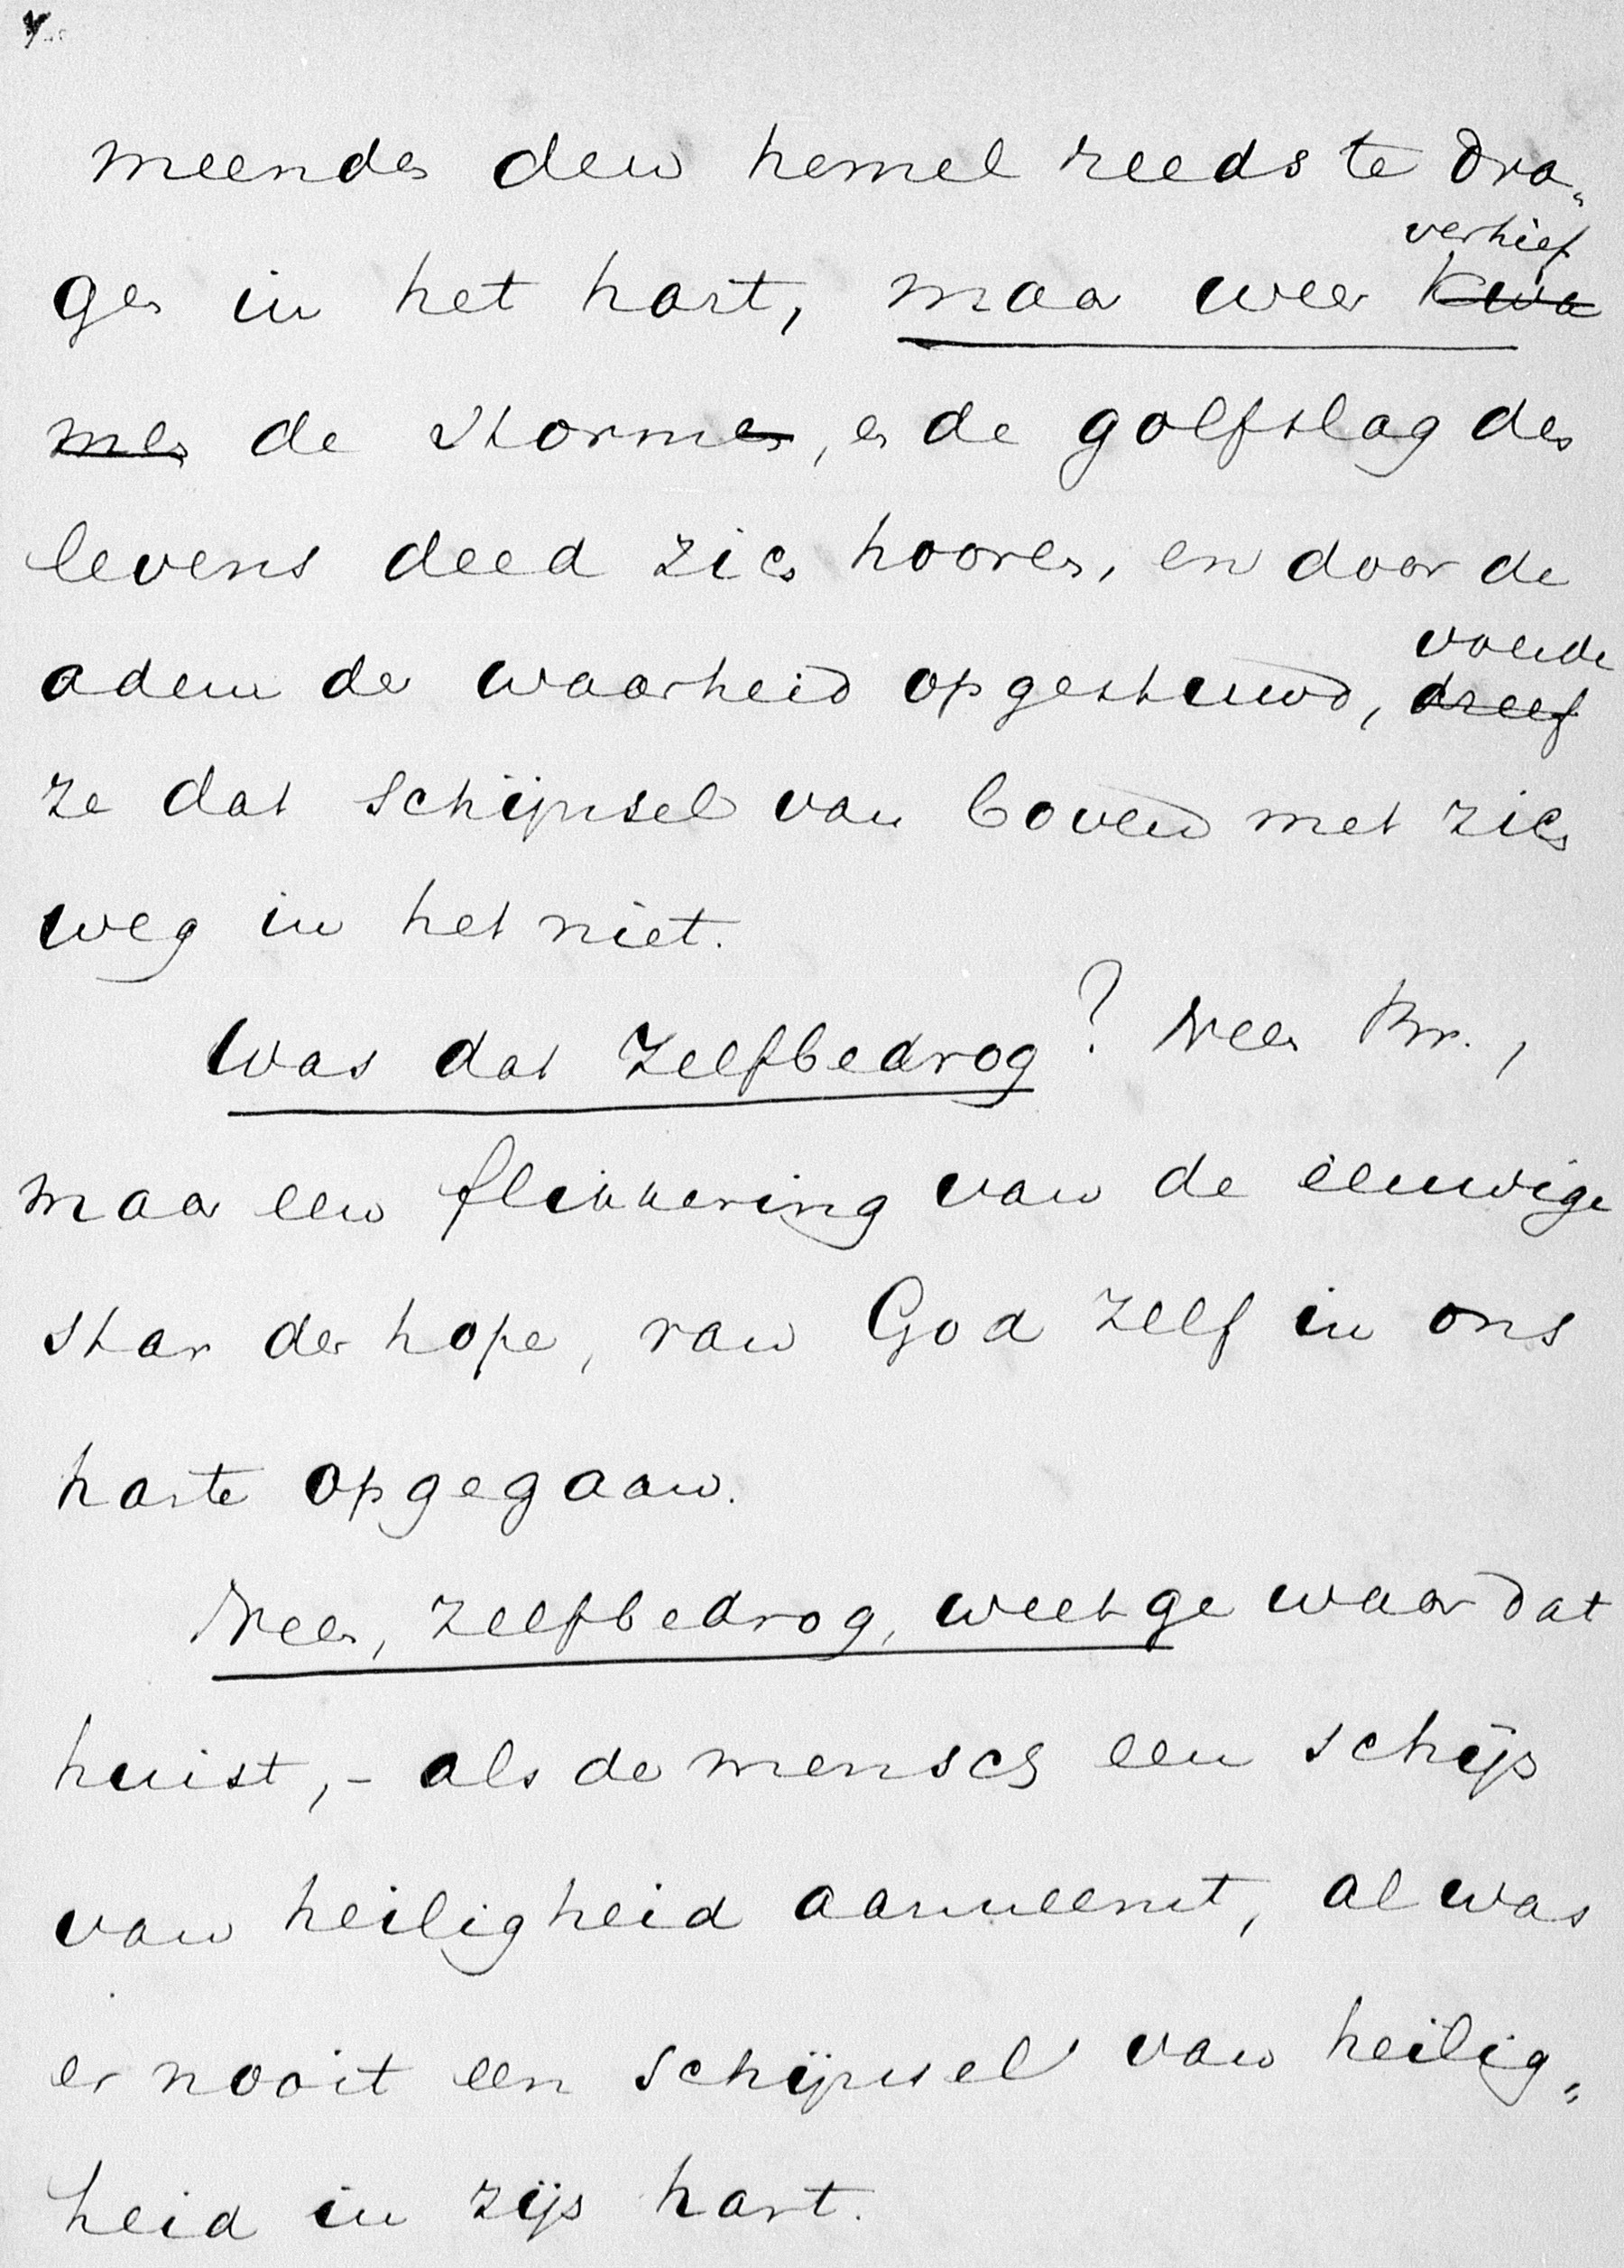 meenden den hemel reeds te dra„
verhief
gen in het hart, maar weer kwa
men de stormen, en de golfslag des
levens deed zich hooren, en door de
voerde
adem der waarheid opgestuwd, dreef
ze dat schijnsel van boven met zich
weg in het niet.
Was dat zelfbedrog? Neen Br.,
maar een flikkering van de eeuwige
star der hope, van God zelf in ons
harte opgegaan.
Neen, zelfbedrog, weet ge waar dat
huist, – als de mensch een schijn
van heiligheid aanneemt, al was
er nooit een schijnsel van heilig„
heid in zijn hart.